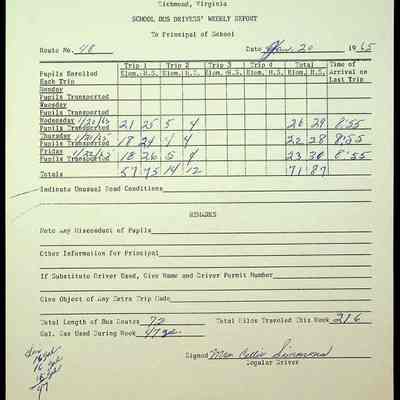 Richmond, Virginia
SCHOOL BUS DRIVERS' WEEKLY REPORT
To Principal of School
Route No. 48 Date Jan. 20 1965
Trip 1 Trip 2 Trip 3 Trip 4 Total Time of
Pupils Enrolled Elem. H.S. Elem. H.S. Elem. H.S. Elem. H.S. Elem. H.S. Arrival on
Each Trip Last Trip
Monday
Pupils Transported
Tuesday
Pupils Transported
Wednesday 1/20/65
Pupils Transported 21 25 5 4 26 29 8:55
Thursday 1/21/65
Pupils Transported 18 24 4 4 22 28 8:55
Friday 1/22/65
Pupils Transported 18 26 5 4 23 30 8:55
Totals 57 75 14 12 71 87
Indicate Unusual Road Conditions
REMARKS
Note Any Misconduct of Pupils
Other Information for Principal
If Substitute Driver Used, Give Name and Driver Permit Number
Give Object of Any Extra Trip Made
Total Length of Bus Routes 72 Total Miles Traveled This Week 216
Gal. Gas Used During Week 47 gal
Signed Mrs. Simmons
Regular Driver
16 gal
47